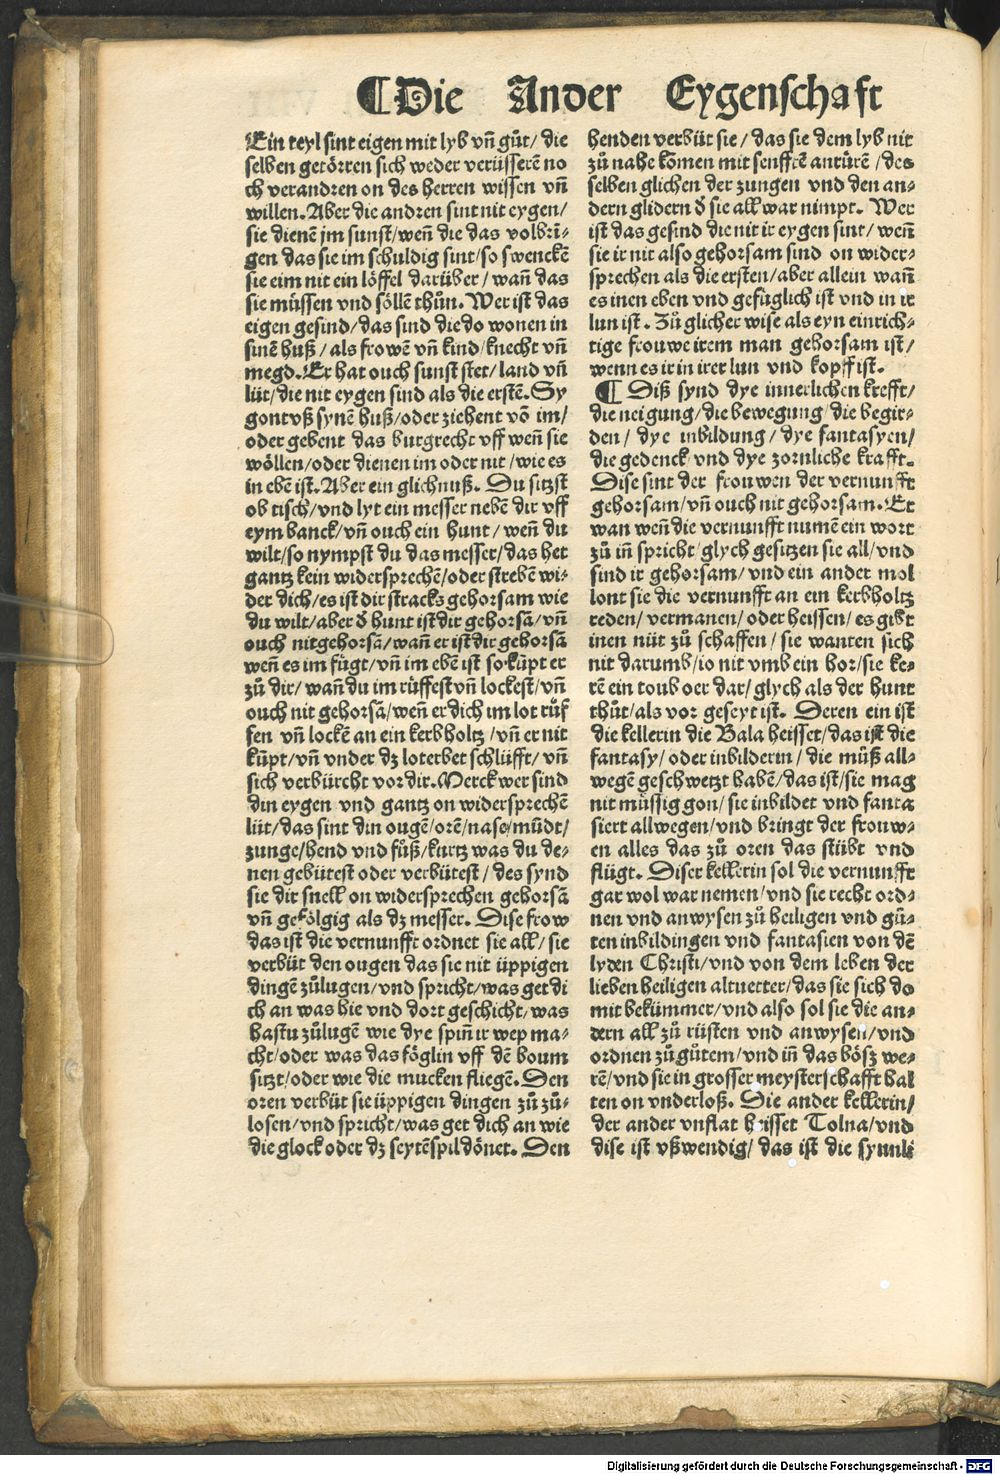 ¶Die Ander Eygenschaft
Ein teyl sint eigen mit lyb vñ gůt/ die
selben getörren sich weder verüsserē no
ch verandren on des herren wissen vñ
willen. Aber die andren sint nit eygen/
sie dienē jm sunst/weñ die das volbrī⸗
gen das sie im schuldig sint/so swenckē
sie eim nit ein löffel darüber/ wañ das
sie müssen vnd söllē thůn. Wer ist das
eigen gesind/das sind die do wonen in
sinē huß/ als frowē vñ kind/knecht vñ
megd. Er hat ouch sunst stet/land vñ
lüt/die nit eygen sind als die erstē. Sy
gont vß synē huß/oder ziehent vō im/
oder gebent das burgrecht vff wen̄ sie
wöllen/oder dienen im oder nit/wie es
in ebē ist. Aber ein glichnuß. Du sitzst
ob tisch/vnd lyt ein messer nebē dir vff
eym banck/vñ ouch ein hunt/ weñ du
wilt/so nympst du das messer/das het
gantz kein widersprechē/oder strebē wi⸗
der dich/es ist dir stracks gehorsam wie
du wilt/aber ð hunt ist dir gehorsā/vñ
ouch nit gehorsā/wañ er ist dir gehorsā
weñ es im fügt/vñ im ebē ist so küpt er
zů dir/ wañ du im rüffest vñ lockest/vñ
ouch nit gehorsā/weñ er dich im lot růf
fen vñ lockē an ein kerbholtz/vñ er nit
küpt/vñ vnder dz loterbet schlüfft/ vñ
sich verbürcht vor dir. Merck wer sind
din eygen vnd gantz on widersprechē
lüt/das sint din ougē/orē/nase/mūdt/
zunge/hend vnd fůß/kurtz was du de⸗
nen gebütest oder verbütest/ des synd
sie dir snell on widersprechen gehorsā
vñ gefölgig als dz messer. Dise frow
das ist die vernunfft ordnet sie all/ sie
verbüt den ougen das sie nit üppigen
dingē zůlugen/vnd spricht/was get di
ch an was hie vnd dort geschicht/was
hastu zůlugē wie dye spiñ ir wep ma⸗
cht/oder was das föglin vff dē boum
sitzt/oder wie die mucken fliegē. Den
oren verbüt sie üppigen dingen zů zů⸗
losen/vnd spricht/was get dich an wie
die glock oder dz seytēspil dönet. Den
henden verbüt sie/ das sie dem lyb nit
zů nahe kōmen mit senfftē anrürē/des
selben glichen der zungen vnd den an⸗
dern glidern ð sie all war nimpt. Wer
ist das gesind die nit ir eygen sint/ weñ
sie ir nit also gehorsam sind on wider⸗
sprechen als die ersten/aber allein wañ
es inen eben vnd gefüglich ist vnd in ir
lun ist. Zů glicher wise als eyn einrich⸗
tige frouwe irem man gehorsam ist/
wenn es ir in irer lun vnd kopff ist.
¶ Diß synd dye innerlichen krefft/
die neigung/die bewegung/die begir⸗
den/ dye inbildung/ dye fantasyen/
die gedenck vnd dye zornliche krafft.
Dise sint der frouwen der vernunfft
gehorsam/vñ ouch nit gehorsam. Et
wan weñ die vernunfft numē ein wort
zů iñ spricht/glych gesitzen sie all/vnd
sind ir gehorsam/vnd ein ander mol
lont sie die vernunfft an ein kerbholtz
reden/ vermanen/ oder heissen/ es gibt
inen nüt zů schaffen/ sie wanten sich
nit darumb/io nit vmb ein hor/sie ke⸗
rē ein toub oer dar/glych als der hunt
thůt/als vor geseyt ist. Deren ein ist
die kellerin die Bala heisset/das ist die
fantasy/oder inbilderin/ die můß all⸗
wegē geschwetzt habē/das ist/sie mag
nit müssig gon/sie inbildet vnd fanta
siert allwegen/vnd bringt der frouw⸗
en alles das zů oren das stübt vnd
flügt. Diser kellerin sol die vernunfft
gar wol war nemen/vnd sie recht ord⸗
nen vnd anwysen zů heiligen vnd gů⸗
ten inbildingen vnd fantasien von dē
lyden Christi/vnd von dem leben der
lieben heiligen altuetter/das sie sich do
mit bekümmer/vnd also sol sie die an⸗
dern all zů rüsten vnd anwysen/vnd
ordnen zů gůtem/vnd iñ das bösz we⸗
rē/vnd sie in grosser meysterschafft hal
ten on vnderloß. Die ander kellerin/
der ander vnflat heisset Tolna/vnd
dise ist vßwendig/ das ist die synnli
Digitalisierung gefördert durch die Deutsche Forschungsgemeinschaft - DFG